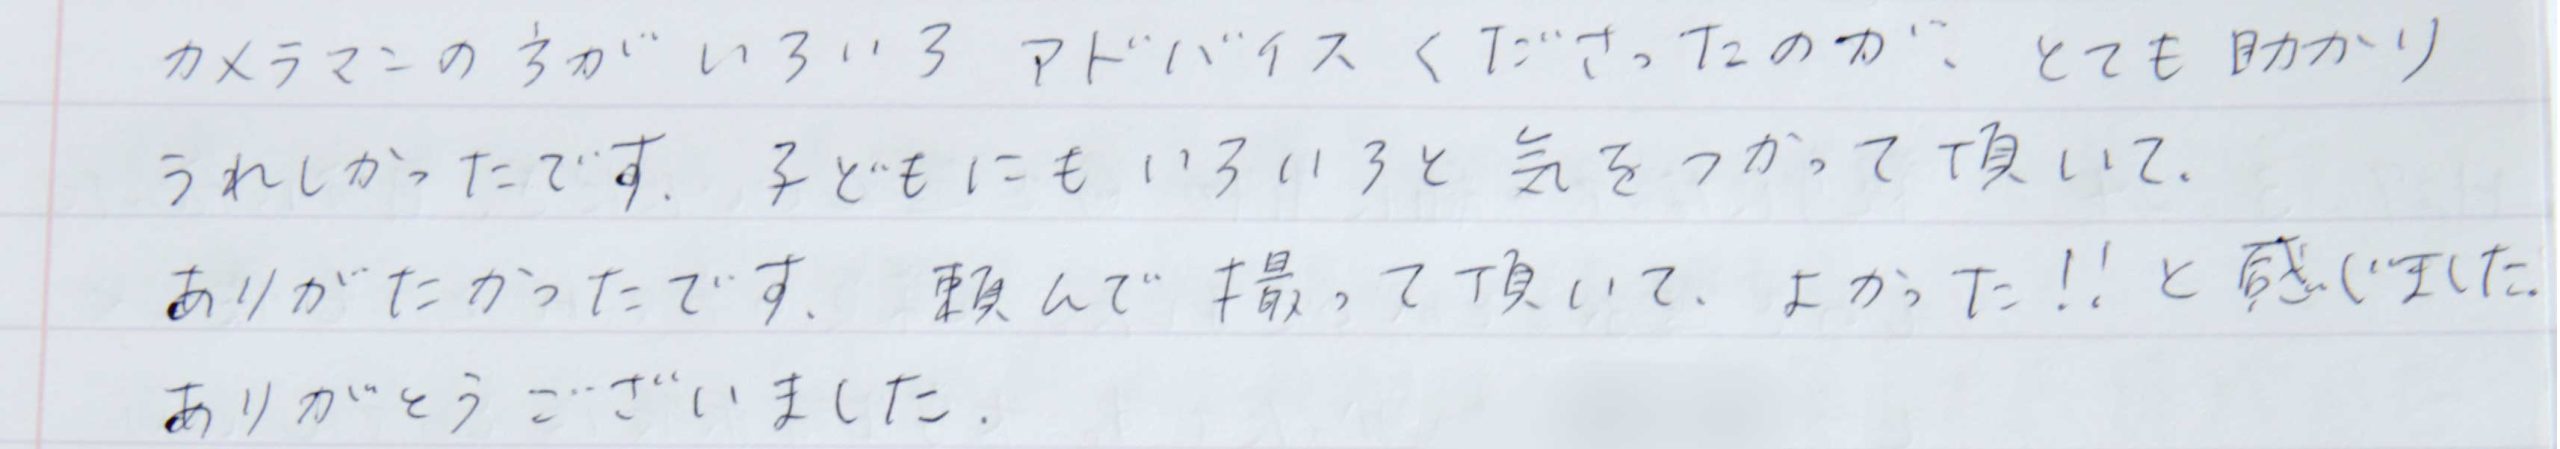 カメラマンの方がいろいろアドバイスくださったのが、とても助かり
うれしかったです. 子どもにもいろいろと気をつかって頂いて.
ありがたかったです. 頼んで撮って頂いて. よかった!! と感じました.
ありがとうございました.